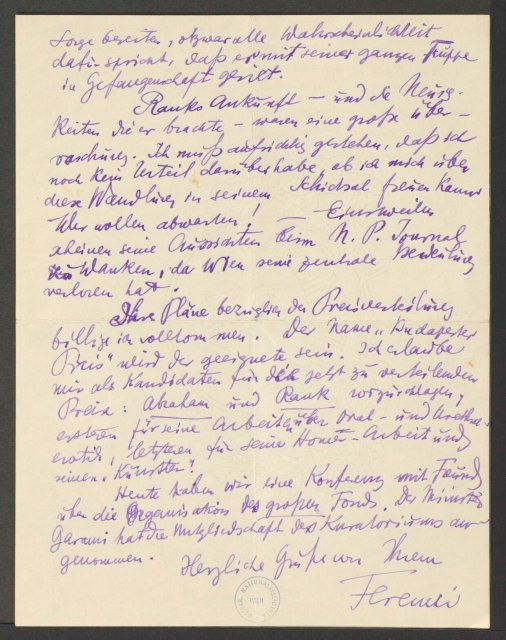 Sorge bereiten, obzwar alle Wahrscheinlichkeit
dafür spricht, daß er mit seiner ganzen Truppe
in Gefangenschaft geriet.
Ranks Ankunft – und die Neuig-
keiten die er brachte – waren eine große Über-
raschung. Ich muß aufrichtig gestehen, daß ich
noch kein Urteil darüber habe, ob ich mich über
diese Wandlung in seinem Schicksal freuen kann.
Wir wollen abwarten! — Einstweilen
scheinen seine Aussichten beim N. P. Journal
zu wanken, da Wien seine zentrale Bedeutung
verloren hat.
Ihre Pläne bezüglich der Preisverteilung
billige ich vollkommen. Der Name „Budapester
Preis" wird der geeignete sein. Ich erlaube
mir als Kandidaten für den jetzt zu verteilenden
Preis: Abraham und Rank vorzuschlagen,
ersteren für seine Arbeiten über Oral- und Urethral-
erotik, letzteren für seine Homer-Arbeit und
seinen „Künstler".
Heute haben wir eine Konferenz mit Freund
über die Organisation des großen Fonds. Der Minister
Garami hat die Mitgliedschaft des Kuratoriums an-
genommen.
Herzliche Grüße von Ihrem
Ferenczi
WIEN